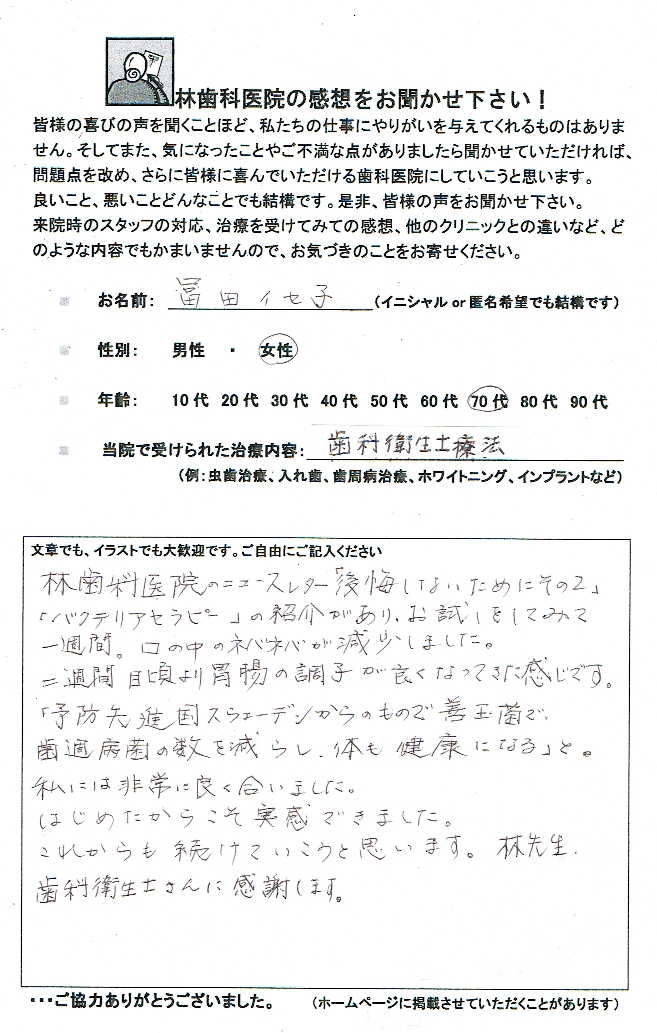 林歯科医院の感想をお聞かせ下さい！
皆様の喜びの声を聞くことほど、私たちの仕事にやりがいを与えてくれるものはありま
せん。そしてまた、気になったことやご不満な点がありましたら聞かせていただければ、
問題点を改め、さらに皆様に喜んでいただける歯科医院にしていこうと思います。
良いこと、悪いことどんなことでも結構です。是非、皆様の声をお聞かせ下さい。
来院時のスタッフの対応、治療を受けてみての感想、他のクリニックとの違いなど、ど
のような内容でもかまいませんので、お気づきのことをお寄せください。
お名前： 冨田イセ子 （イニシャル or 匿名希望でも結構です）
性別： 男性 ・ 女性
年齢： 10代 20代 30代 40代 50代 60代 70代 80代 90代
当院で受けられた治療内容： 歯科衛生士療法
（例：虫歯治療、入れ歯、歯周病治療、ホワイトニング、インプラントなど）
文章でも、イラストでも大歓迎です。ご自由にご記入ください
林歯科医院のニュースレター「後悔しないためにその2」
「バクテリアセラピー」の紹介があり、お試しをしてみて
一週間。口の中のネバネバが減少しました。
二週間目頃より胃腸の調子が良くなってきた感じです。
「予防先進国スウェーデンからのもので善玉菌で、
歯週病菌の数を減らし、体も健康になる」と。
私には非常に良く合いました。
はじめたからこそ実感できました。
これからも続けていこうと思います。林先生、
歯科衛生士さんに感謝します。
・・・ご協力ありがとうございました。 （ホームページに掲載させていただくことがあります）